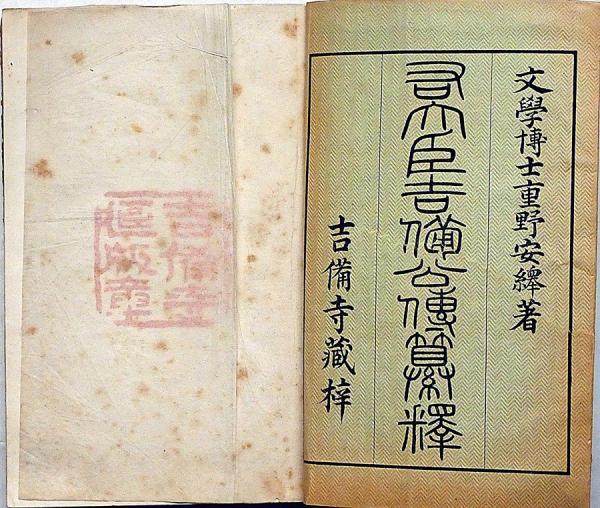 文學博士重野安繹著
右大臣吉備公傳纂釋
吉備寺藏梓
吉備寺